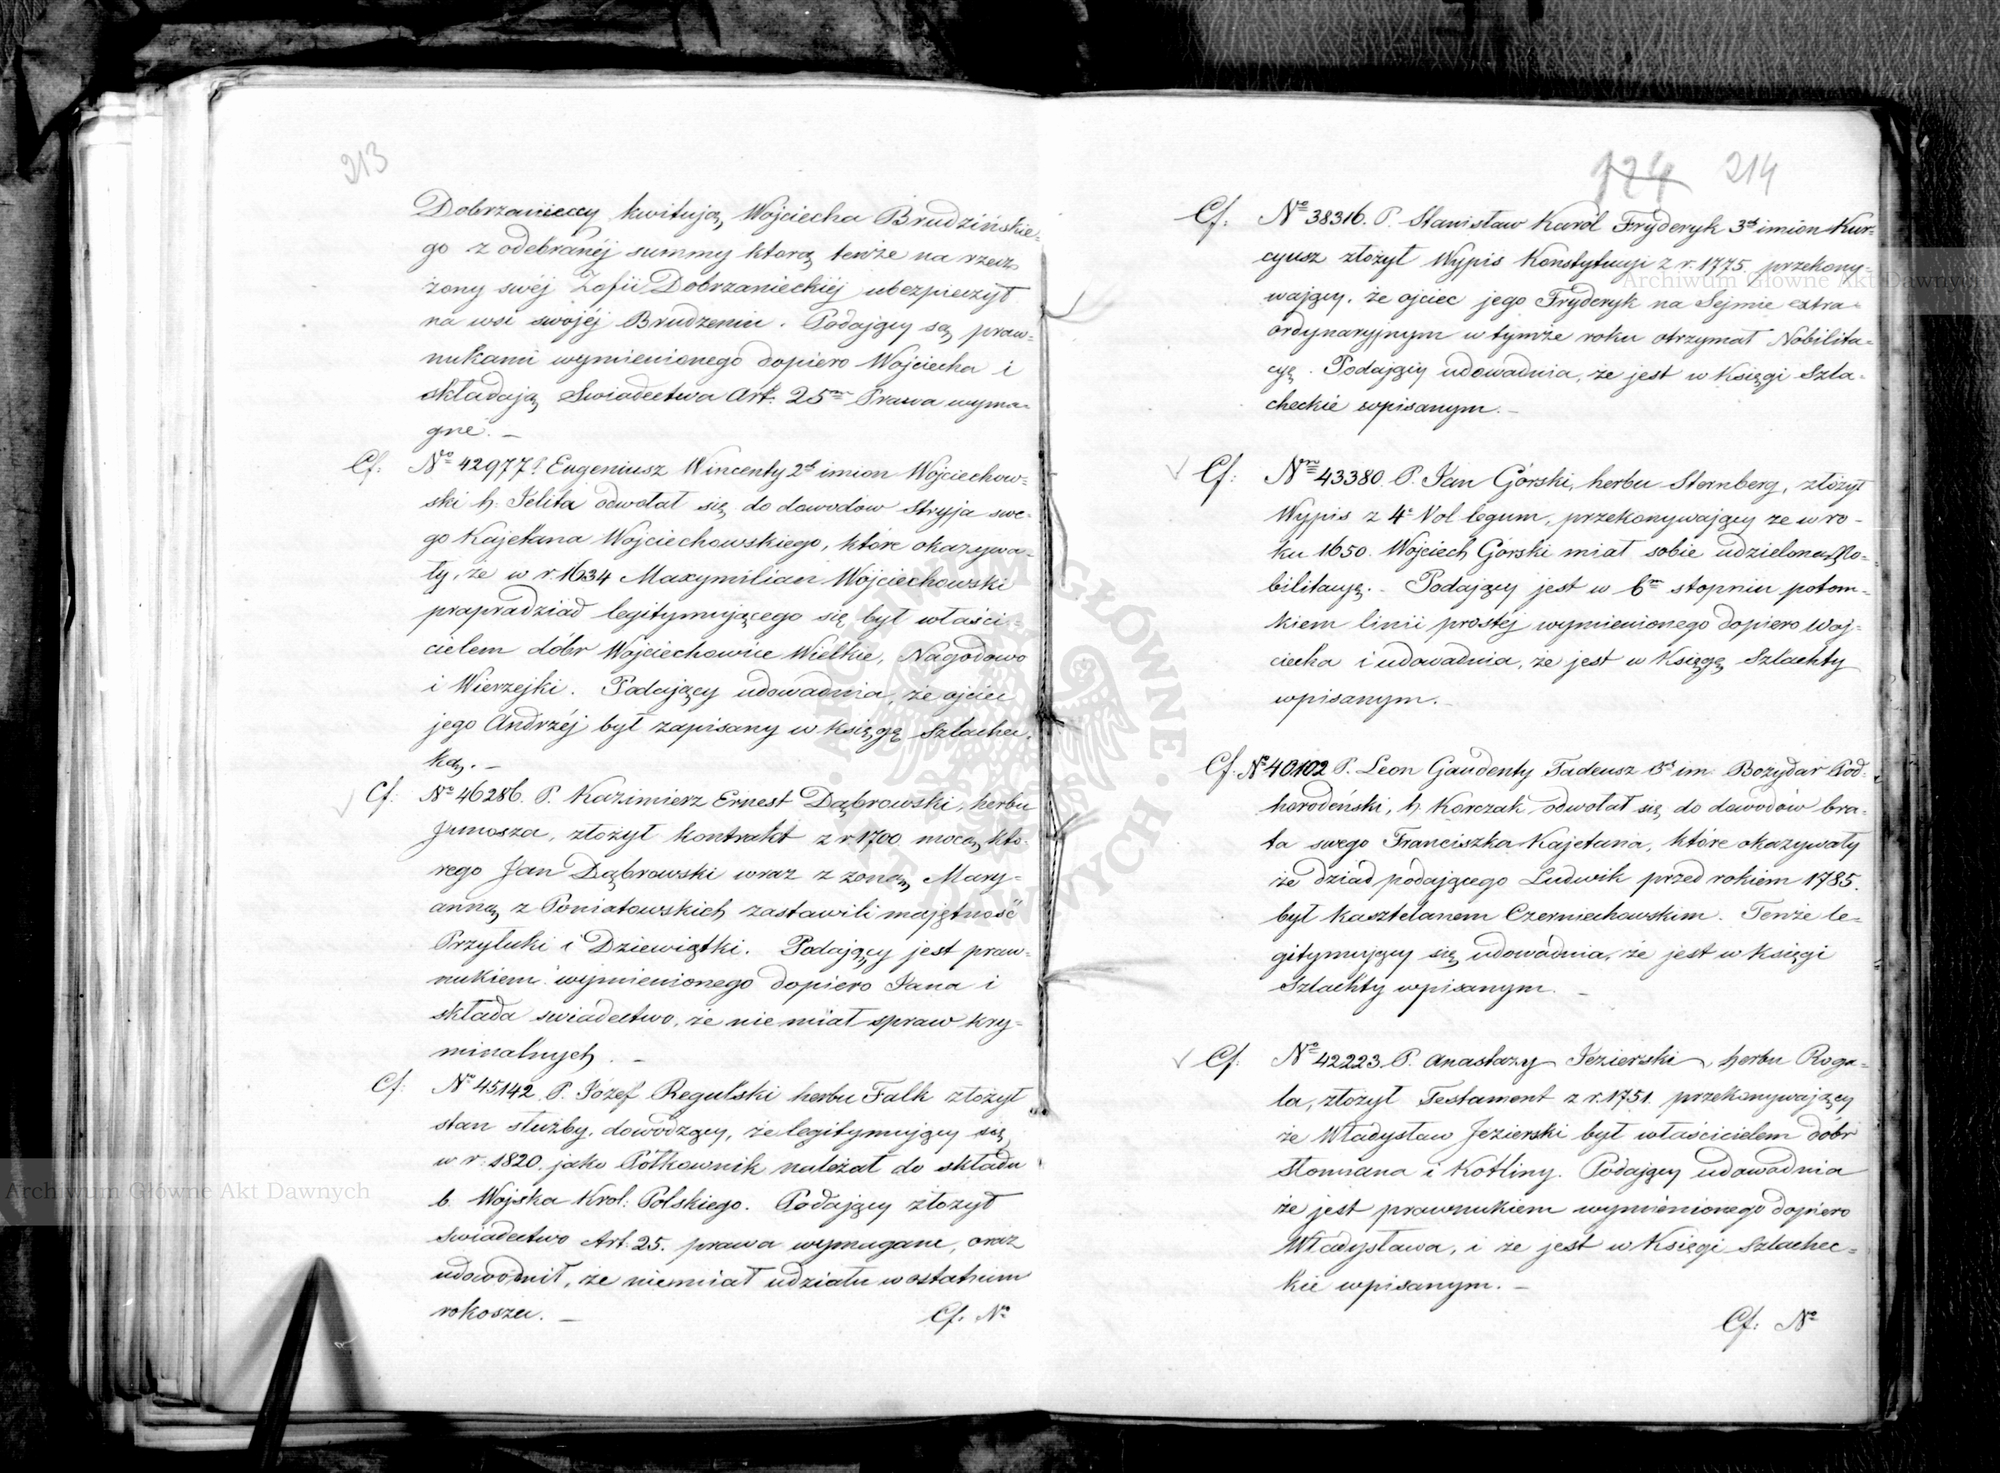 213
Dobrzanieccy kwitują Wojciecha Brudzińskie-
go z odebranéj summy ktorą tenże na rzecz
żony swéj Zofii Dobrzanieckiéj ubezpieczył
na wsi swojéj Brudzeniu. Podający są praw-
nukami wymienionego dopiero Wojciecha i
składają Swiadectwa Art: 25m Prawa wyma-
gne. —
Cf: No 42977 P. Eugeniusz Wincenty 2ch imion Wojciechow-
ski h. Jelita odwołał się do dowodow Stryja swe-
go Kajetana Wojciechowskiego, które okazywa-
ły, że w r. 1634 Maxymilian Wojciechowski
prapradziad legitymującego się był właści-
cielem dóbr Wojciechowice Wielkie, Nagodowo
i Wierzejki. Podający udowadnia, że ojciec
jego Andrzéj był zapisany w Księgę Szlachec-
ką. —
Cf: No 46286. P. Kazimierz Ernest Dąbrowski, herbu
Junosza, złożył kontrakt z r. 1700 mocą któ-
rego Jan Dąbrowski wraz z żoną Mary-
anną z Poniatowskich zastawili majętność
Przyłuki i Dziewiątki. Podający jest praw-
nukiem wymienionego dopiero Jana i
składa swiadectwo, że nie miał spraw kry-
minalnych. —
Cf: No 45142 P. Jozef Regulski herbu Falk złożył
stan służby, dowodzący, że legitymujący się
w r. 1820. jako Półkownik należał do składu
b. Wojska Krol: Polskiego. Podający złożył
swiadectwo Art: 25. prawa wymagane, oraz
udowodnił, że niemiał udziału w ostatnim
rokoszu. —
Cf. No
124 214
Cf: No 38316. P. Stanisław Karól Fryderyk 3ch imion Kur-
cyusz złożył Wypis Konstytucyi z r. 1775. przekony-
wający, że ojciec jego Fryderyk na Sejmie extra-
ordynaryjnym w tymże roku otrzymał Nobilita-
cyę. Podający udowadnia, że jest w Księgi Szla-
checkie wpisanym. —
Cf: No 43380. P. Jan Górski, herbu Sternberg, złożył
Wypis z 4o Vol legum, przekonywający że w ro-
ku 1650. Wojciech Górski miał sobie udzieloną No-
bilitacyę. Podający jest w 6m stopniu potom-
kiem linii prostéj wymienionego dopiero Woj-
ciecha i udowadnia, że jest w Księgę Szlachty
wpisanym. —
Cf: No 40102 P. Leon Gaudenty Tadeusz 3ch im: Bożydar Pod-
horodeński, h. Korczak odwołał się do dowodów bra-
ta swego Franciszka Kajetana, które okazywały
że dziad podającego Ludwik przed rokiem 1785.
był kasztelanem Czerniechowskim. Tenże le-
gitymujący się, udowadnia, że jest w Księgi
Szlachty wpisanym. —
Cf: No 42223. P. Anastazy Jezierski, herbu Roga-
la, złożył Testament z r. 1751. przekonywający
że Władysław Jezierski był właścicielem dóbr
Słomiana i Kotliny. Podający udowadnia
że jest prawnukiem wymienionego dopiero
Władysława, i że jest w Księgi Szlachec-
kie wpisanym. —
Cf: No
Archiwum Główne Akt Dawnych
Archiwum Główne Akt Dawnych
ARCHIWUM GŁÓWNE AKT DAWNYCH